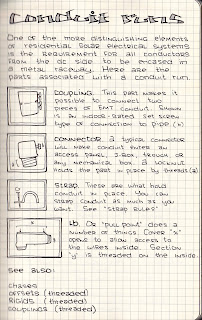 Conduit Runs
One of the more distinguishing elements
of residential solar electrical systems
is the requirement for all conductors
from the DC side to be encased in
a metal raceway. Here are the
parts associated with a conduit run.
COUPLING. This part makes it
possible to connect two
pieces of EMT conduit. Shown
is an indoor-rated set screw
type of connection
CONNECTOR. A typical connector
will make conduit enter an
access panel, J-box, trough, or
any mechanical box. A locknut
holds the part in place by threads
STRAP. These are what hold
conduit in place. You can
strap conduit as much as you
want. See "STRAP RULES"
LB. Or "pull point" does a
number of things. Cover "a"
opens to allow access to
the wires inside. Section
is threaded on the inside.
See also:
Chases
Offsets (threaded)
Rigids (threaded)
Couplings (threaded)